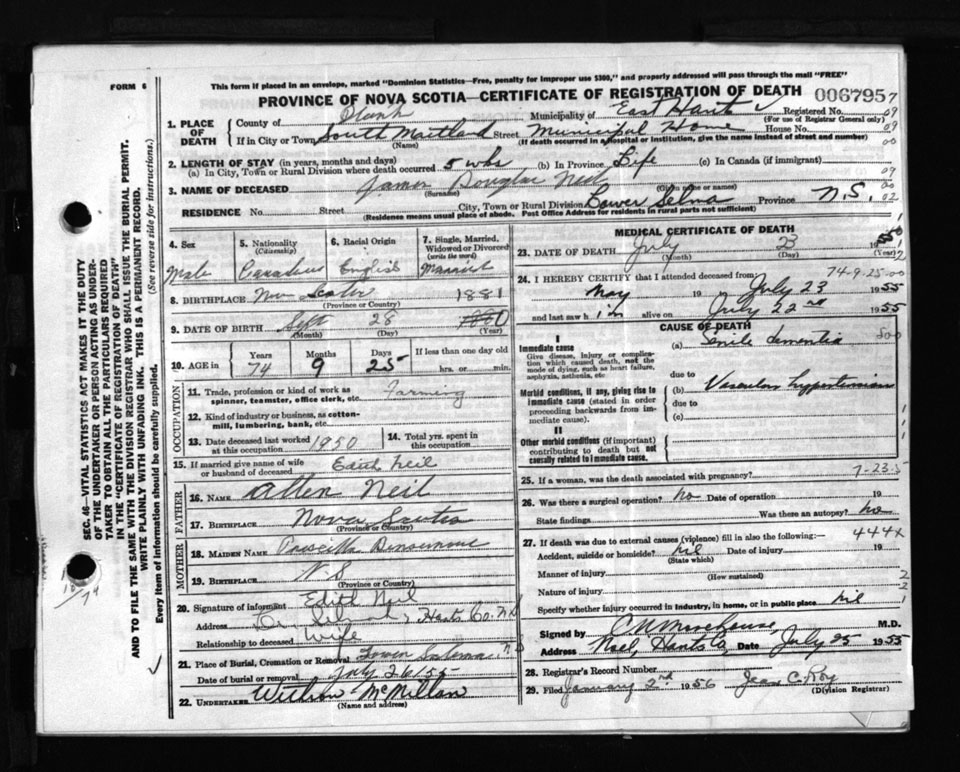 This form if placed in an envelope, marked "Dominion Statistics—Free, penalty for improper use $300," and properly addressed will pass through the mail "FREE"
FORM 6
PROVINCE OF NOVA SCOTIA—CERTIFICATE OF REGISTRATION OF DEATH 006795
1. PLACE OF DEATH
County of Municipality of East Hants Registered No.
(For use of Registrar General only)
If in City or Town South Maitland Street Municipal Home House No.
(Name) (If death occurred in a hospital or institution, give the name instead of street and number)
2. LENGTH OF STAY (in years, months and days)
(a) In City, Town or Rural Division where death occurred 5 wks (b) In Province Life (c) In Canada (if immigrant)
3. NAME OF DECEASED James Douglas Neil
(Surname) (Given name or names)
RESIDENCE No. Street City, Town or Rural Division Lower Selma Province N.S.
(Residence means usual place of abode. Post Office Address for residents in rural parts not sufficient)
4. Sex Male
5. Nationality (Citizenship) Canadian
6. Racial Origin English
7. Single, Married, Widowed or Divorced (write the word) Married
8. BIRTHPLACE Nova Scotia 1881
(Province or Country)
9. DATE OF BIRTH Sept 28 1880
(Month) (Day) (Year)
10. AGE in Years 74 Months 9 Days 25 If less than one day old hrs. or min.
OCCUPATION
11. Trade, profession or kind of work as spinner, teamster, office clerk, etc. Farming
12. Kind of industry or business, as cotton-mill, lumbering, bank, etc.
13. Date deceased last worked at this occupation 1950
14. Total yrs. spent in this occupation.
15. If married give name of wife or husband of deceased Edith Neil
FATHER
16. NAME Allen Neil
17. BIRTHPLACE Nova Scotia
(Province or Country)
MOTHER
18. MAIDEN NAME Priscilla
19. BIRTHPLACE N S
(Province or Country)
20. Signature of informant Edith Neil
Address Hants Co. N.S
Relationship to deceased Wife
21. Place of Burial, Cremation or Removal Lower Selma N S
Date of burial or removal July 26/55
22. UNDERTAKER Wilson McMillan
(Name and address)
MEDICAL CERTIFICATE OF DEATH
23. DATE OF DEATH July 23 1955
(Month) (Day)
74-9-25-00
24. I HEREBY CERTIFY that I attended deceased from
May 19 to July 23 1955
and last saw him alive on July 22nd 1955
CAUSE OF DEATH
I
Immediate cause (a) Senile dementia
Give disease, injury or complication which caused death, not the mode of dying, such as heart failure, asphyxia, asthenia, etc
due to
Morbid conditions, if any, giving rise to immediate cause (stated in order proceeding backwards from immediate cause). (b) Vascular hypertension
due to
(c)
II
Other morbid conditions (if important) contributing to death but not causally related to immediate cause.
25. If a woman, was the death associated with pregnancy?
26. Was there a surgical operation? no Date of operation 19
State findings Was there an autopsy? no
27. If death was due to external causes (violence) fill in also the following:— 444X
Accident, suicide or homicide? nil Date of injury 19
(State which)
Manner of injury
(How sustained)
Nature of injury
Specify whether injury occurred in industry, in home, or in public place nil
Signed by C N Morehouse M.D.
Address Noel, Hants Co Date July 25 1955
28. Registrar's Record Number
29. Filed January 2nd 1956 Jean C. Roy
(Division Registrar)
SEC. 46—VITAL STATISTICS ACT MAKES IT THE DUTY
OF THE UNDERTAKER OR PERSON ACTING AS UNDER-
TAKER TO OBTAIN ALL THE PARTICULARS REQUIRED
IN THE "CERTIFICATE OF REGISTRATION OF DEATH"
AND TO FILE THE SAME WITH THE DIVISION REGISTRAR WHO SHALL ISSUE THE BURIAL PERMIT.
WRITE PLAINLY WITH UNFADING INK. THIS IS A PERMANENT RECORD.
Every item of information should be carefully supplied. (See reverse side for instructions.)